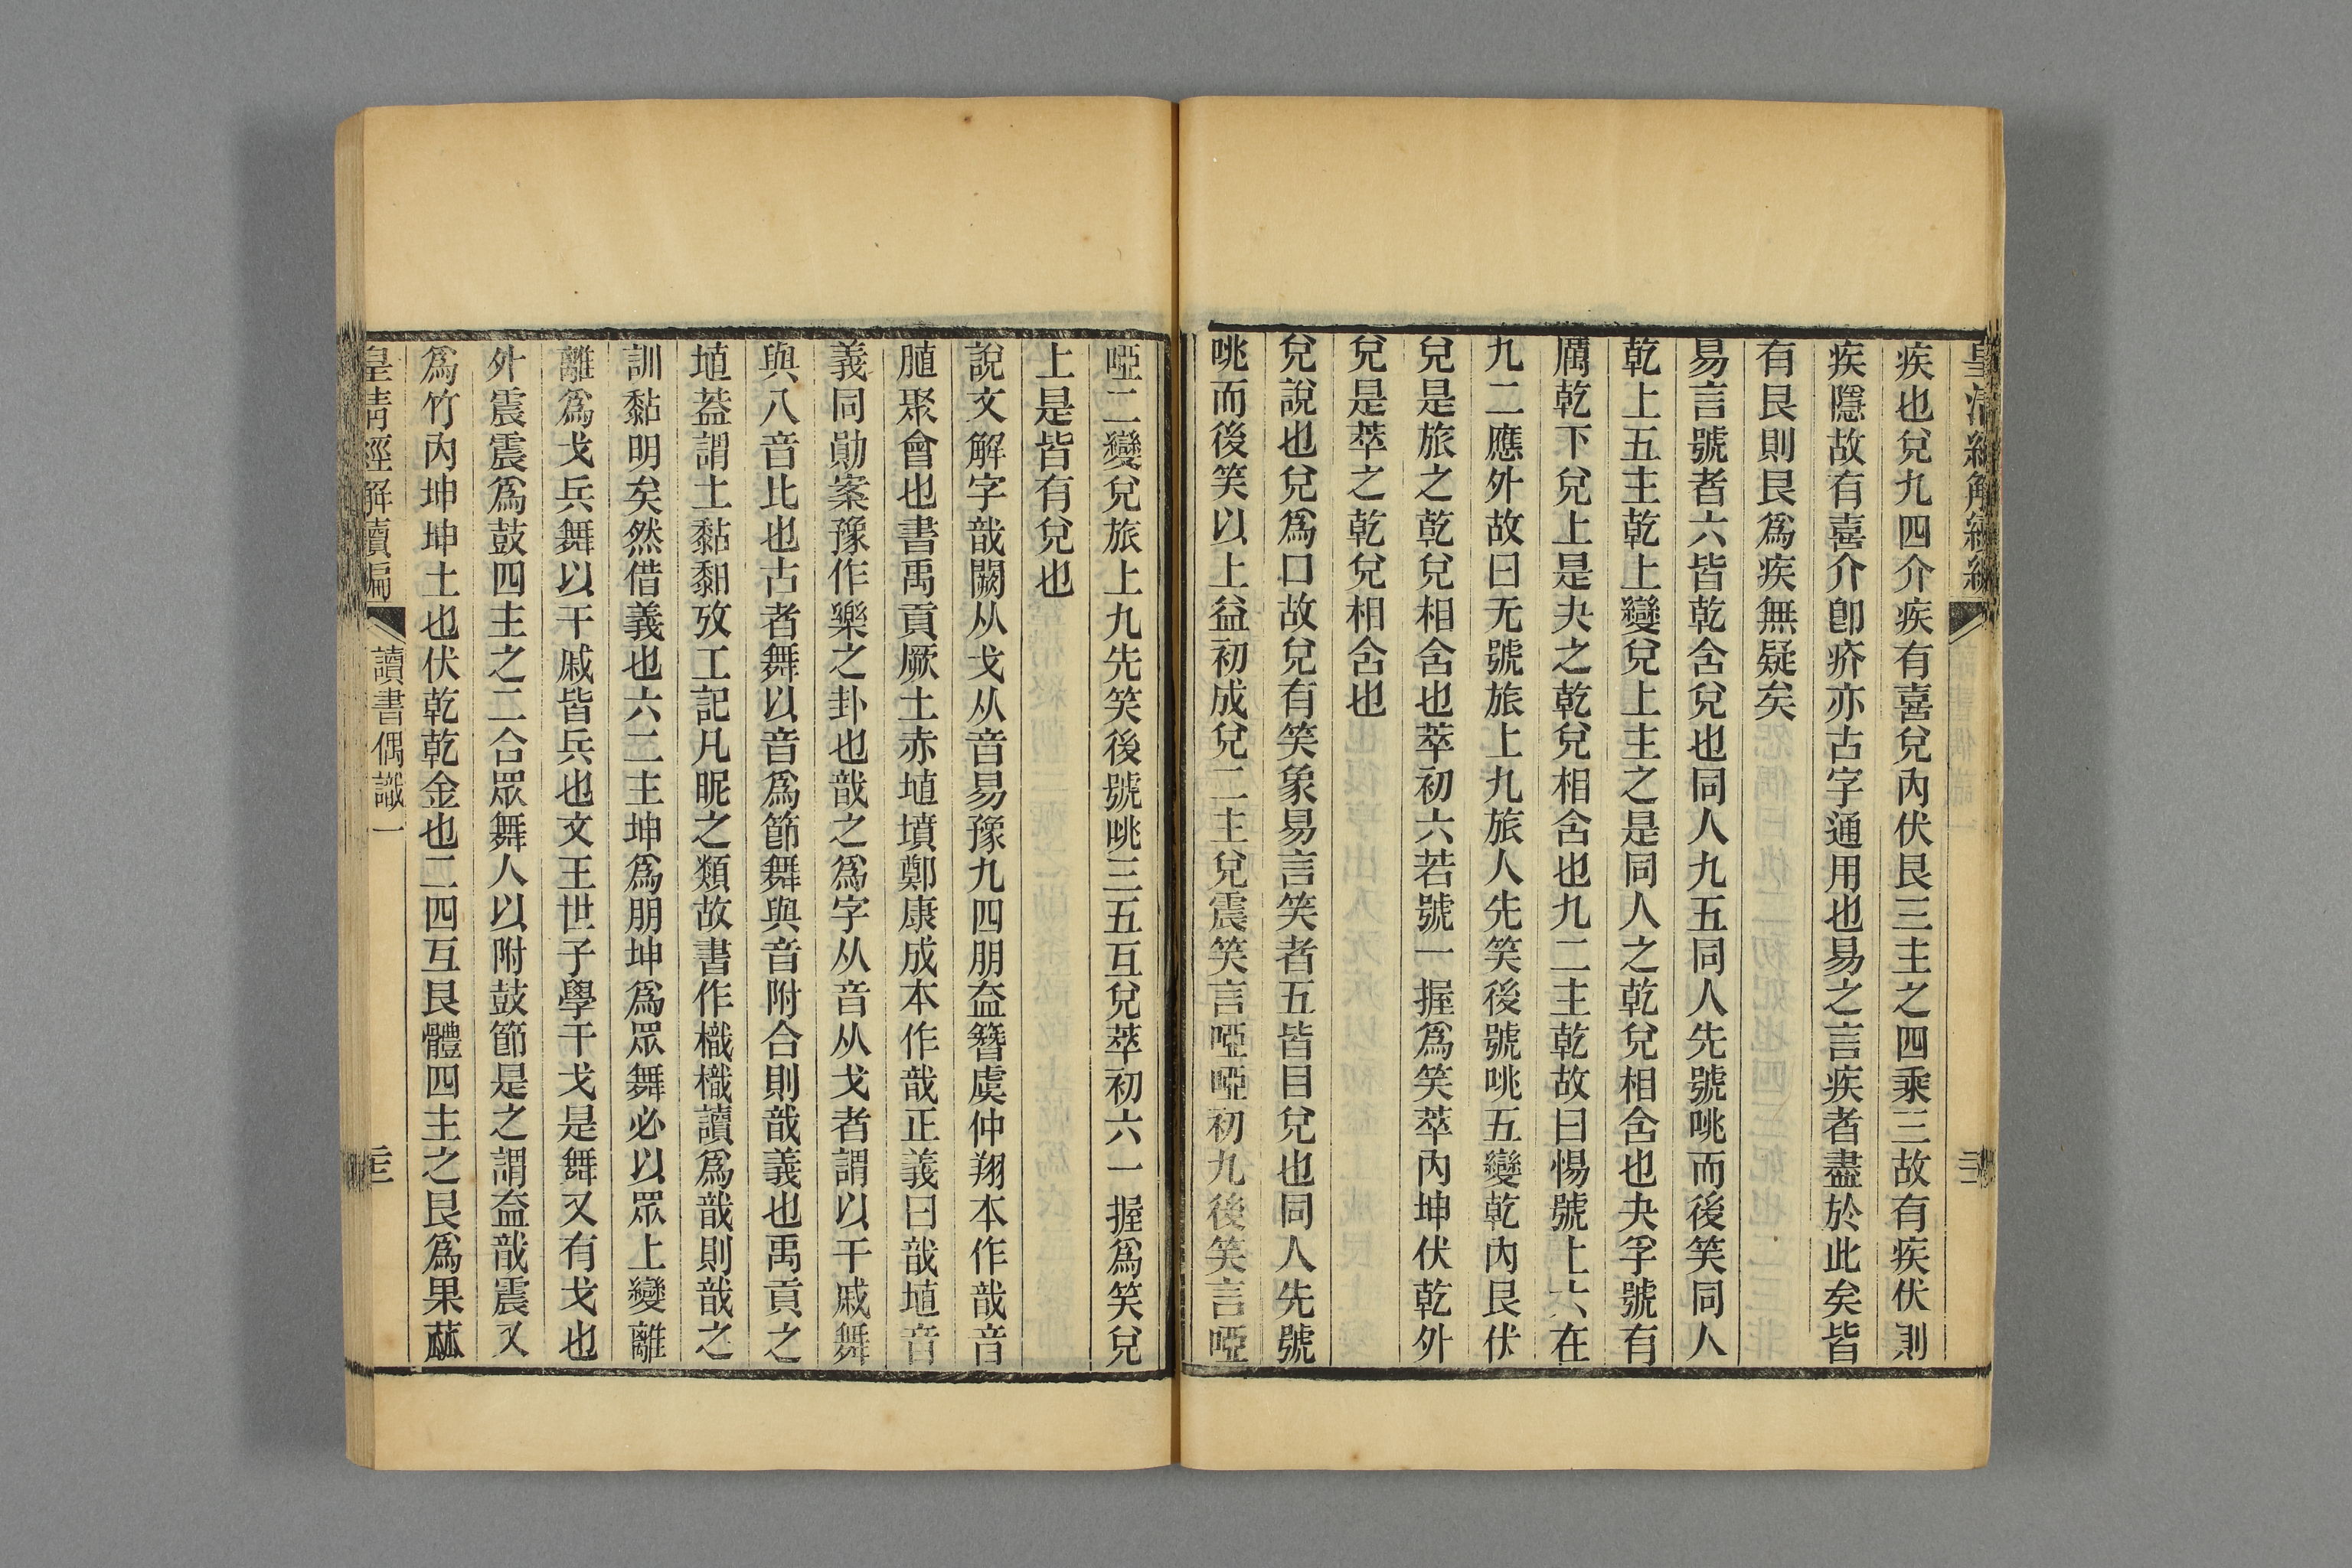 皇清經解續編
疾也兌九四介疾有喜兌內伏艮三主之四乘三故有疾伏則
疾隱故有喜介卽疥亦古字通用也易之言疾者盡於此矣皆
有艮則艮爲疾無疑矣
易言號者六皆乾含兌也同人九五同人先號咷而後笑同人
乾上五主乾上變兌上主之是同人之乾兌相含也夬孚號有
厲乾下兌上是夬之乾兌相含也九二主乾故曰惕號上六在
九二應外故曰无號旅上九旅人先笑後號咷五變乾內艮伏
兌是旅之乾兌相含也萃初六若號一握爲笑萃內坤伏乾外
兌是萃之乾兌相含也
兌說也兌爲口故兌有笑象易言笑者五皆目兌也同人先號
咷而後笑以上益初成兌二主兌震笑言啞啞初九後笑言啞
啞二變兌旅上九先笑後號咷三五互兌萃初六一握爲笑兌
上是皆有兌也
說文解字戠闕从戈从音易豫九四朋盍簪虞仲翔本作戠音
脜聚會也書禹貢厥土赤埴墳鄭康成本作戠正義曰戠埴音
義同勛案豫作樂之卦也戠之爲字从音从戈者謂以干戚舞
與八音比也古者舞以音爲節舞與音附合則戠義也禹貢之
埴葢謂土黏黏攷工記凡昵之類故書作樴樴讀爲戠則戠之
訓黏明矣然借義也六二主坤爲朋坤爲眾舞必以眾上變離
離爲戈兵舞以干戚皆兵也文王世子學干戈是舞又有戈也
外震震爲鼓四主之二合眾舞人以附鼓節是之謂盍戠震又
爲竹內坤坤土也伏乾乾金也二四互艮體四主之艮爲果蓏
皇清經解續編
讀書偶識一